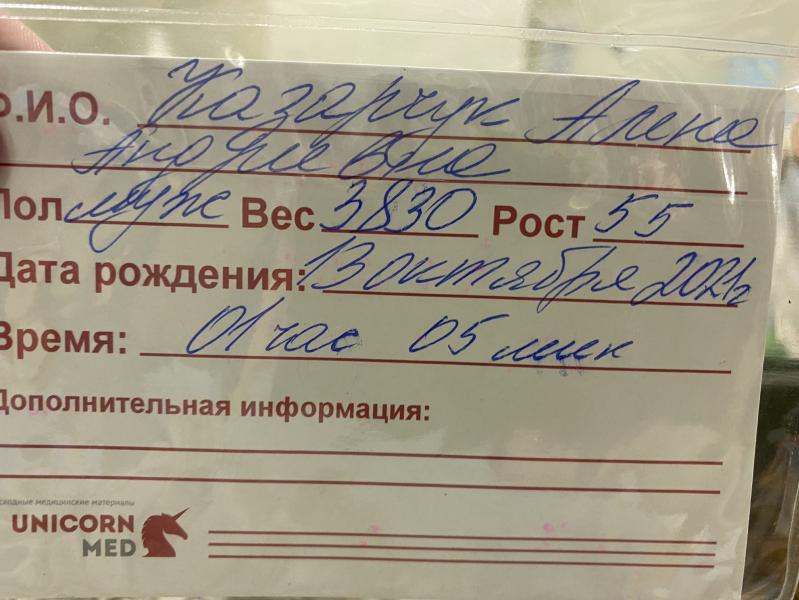 Ф.И.О. Казарчук Алена
Андреевна
Пол муж Вес 3830 Рост 55
Дата рождения: 13 октября 2021г
Время: 01 час 05 мин
Дополнительная информация:
сходные медицинские материалы
UNICORN
MED